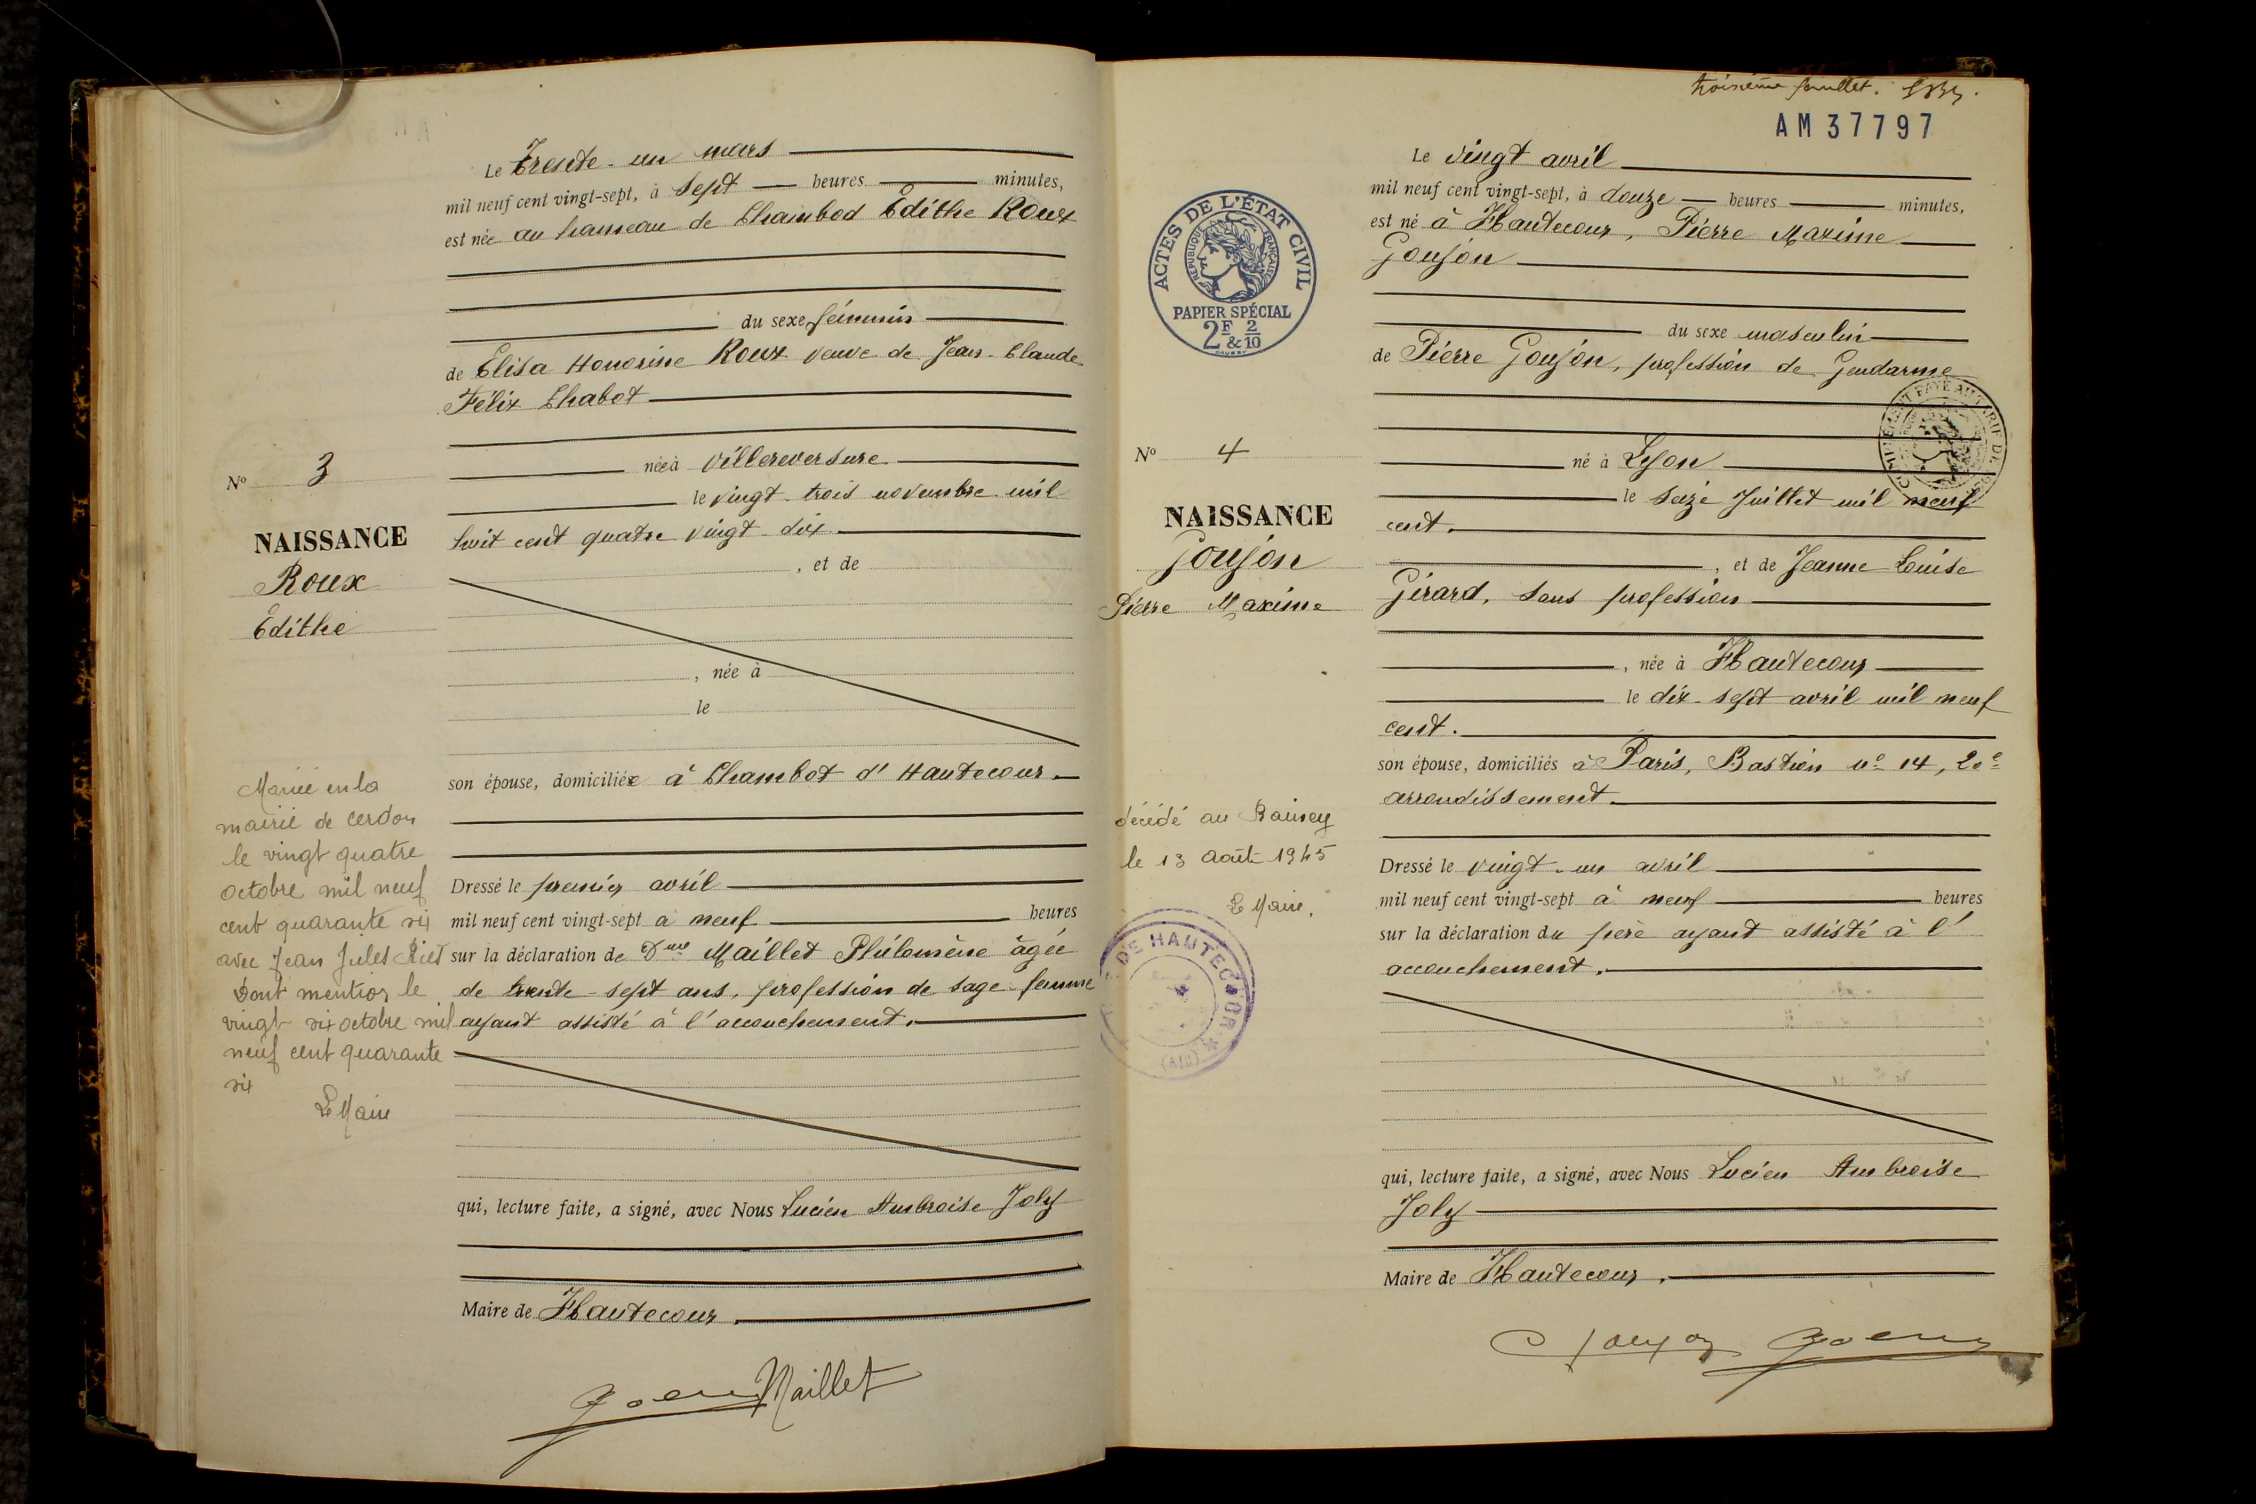 Le trente-un mars
mil neuf cent vingt-sept, à sept heures minutes,
est née au hameau de Chambod Edithe Roux
du sexe féminin
de Elisa Honorine Roux veuve de Jean-Claude
Félix Chabot
née à Villereversure
le vingt-trois novembre mil
huit cent quatre vingt-dix
, et de
, née à
le
son épouse, domiciliée à Chambot d'Hautecour.
Dressé le premier avril
mil neuf cent vingt-sept à neuf heures
sur la déclaration de Dme Maillet Philomène âgée
de trente-sept ans, profession de sage-femme
ayant assisté à l'accouchement.
qui, lecture faite, a signé, avec Nous Lucien Ambroise Joly
Maire de Hautecour.
Maillet
No 3
NAISSANCE
Roux
Edithe
Mariée en la
mairie de Cerdon
le vingt quatre
octobre mil neuf
cent quarante six
avec Jean Jules
Dont mention le
vingt six octobre mil
neuf cent quarante
six
Le Maire
troisième feuillet.
AM 37797
Le vingt avril
mil neuf cent vingt-sept, à douze heures minutes,
est né à Hautecour, Pierre Maxime
Goujon
du sexe masculin
de Pierre Goujon, profession de Gendarme
né à Lyon
le seize Juillet mil neuf
cent.
, et de Jeanne Louise
Girard, sans profession
, née à Hautecour
le dix-sept avril mil neuf
cent.
son épouse, domiciliés à Paris, Bastion no 14, 20e
arrondissement.
Dressé le vingt-un avril
mil neuf cent vingt-sept à neuf heures
sur la déclaration du père ayant assisté à l'
accouchement.
qui, lecture faite, a signé, avec Nous Lucien Ambroise
Joly
Maire de Hautecour.
Goujon
ACTES DE L'ÉTAT CIVIL
RÉPUBLIQUE FRANÇAISE
PAPIER SPÉCIAL
2F & 2/10
No 4
NAISSANCE
Goujon
Pierre Maxime
décédé au Raincy
le 13 août 1945
Le Maire,
DE HAUTECOUR
(AIN)